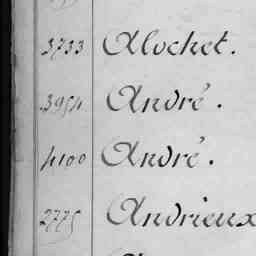 3733 Alochet.
3954 André.
4100 André.
2775 Andrieux